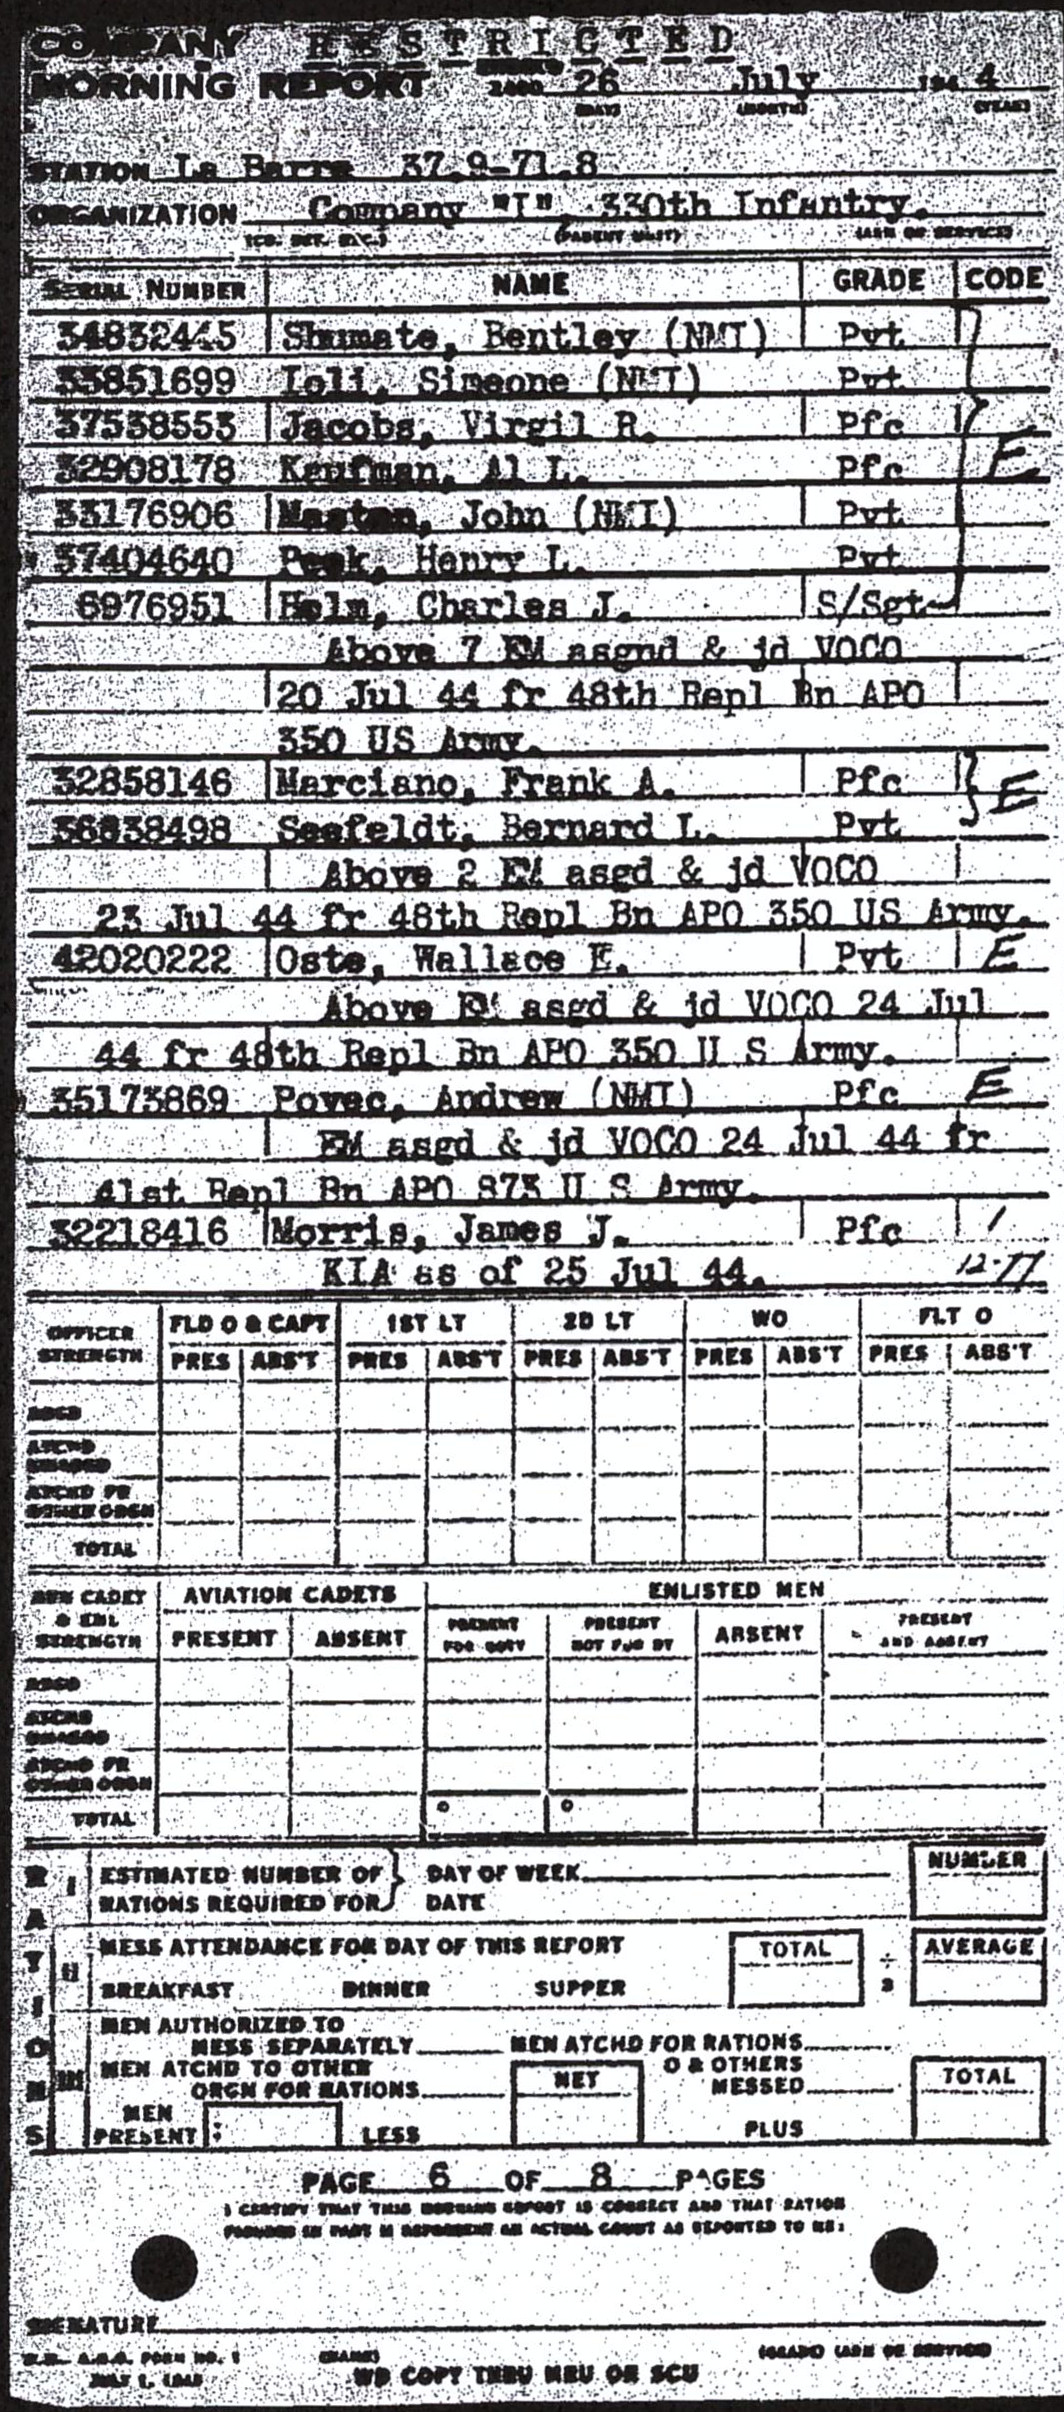 COMPANY RESTRICTED
MORNING REPORT 26 July 194 4
(DAY) (MONTH) (YEAR)
STATION La Barre 37.9-71.8
ORGANIZATION Company "I", 330th Infantry.
(PARENT UNIT) (ARM OR SERVICE)
SERIAL NUMBER NAME GRADE CODE
34832445 Shumate, Bentley (NMI) Pvt
33851699 Ioli, Simeone (NMI) Pvt
37538553 Jacobs, Virgil R. Pfc
32908178 Kaufman, Al L. Pfc E
33176906 John (NMI) Pvt
37404640 Peek, Henry L. Pvt
6976951 Helm, Charles J. S/Sgt
Above 7 EM asgnd & jd VOCO
20 Jul 44 fr 48th Repl Bn APO
350 US Army.
32858146 Marciano, Frank A. Pfc E
36838498 Seefeldt, Bernard L. Pvt
Above 2 EM asgd & jd VOCO
23 Jul 44 fr 48th Repl Bn APO 350 US Army.
42020222 Oste, Wallace E. Pvt E
Above EM asgd & jd VOCO 24 Jul
44 fr 48th Repl Bn APO 350 U S Army.
35173869 Povac, Andrew (NMI) Pfc E
EM asgd & jd VOCO 24 Jul 44 fr
41st Repl Bn APO 873 U S Army.
32218416 Morris, James J. Pfc /
KIA as of 25 Jul 44. 12-77
OFFICER STRENGTH FLD O & CAPT 1ST LT 2D LT WO FLT O
PRES ABS'T PRES ABS'T PRES ABS'T PRES ABS'T PRES ABS'T
ASGD
ATCHD UNASGD
ATCHD FR OTHER ORGN
TOTAL
AVN CADET & ENL STRENGTH AVIATION CADETS ENLISTED MEN
PRESENT ABSENT PRESENT FOR DUTY PRESENT NOT FOR DY ABSENT PRESENT AND ABSENT
ASGD
ATCHD UNASGD
ATCHD FR OTHER ORGN
TOTAL
RATIONS
I ESTIMATED NUMBER OF DAY OF WEEK NUMBER
RATIONS REQUIRED FOR DATE
II MESS ATTENDANCE FOR DAY OF THIS REPORT TOTAL ÷ 3 AVERAGE
BREAKFAST DINNER SUPPER
III MEN AUTHORIZED TO
MESS SEPARATELY MEN ATCHD FOR RATIONS
MEN ATCHD TO OTHER O & OTHERS
ORGN FOR RATIONS NET MESSED TOTAL
MEN PRESENT : LESS PLUS
PAGE 6 OF 8 PAGES
I CERTIFY THAT THIS MORNING REPORT IS CORRECT AND THAT RATION
FIGURES IN PART II REPRESENT AN ACTUAL COUNT AS REPORTED TO ME:
SIGNATURE
W.D. A.G.O. FORM NO. 1 (NAME) (GRADE) (ARM OR SERVICE)
JULY 1, 1943 WD COPY THRU MRU OR SCU